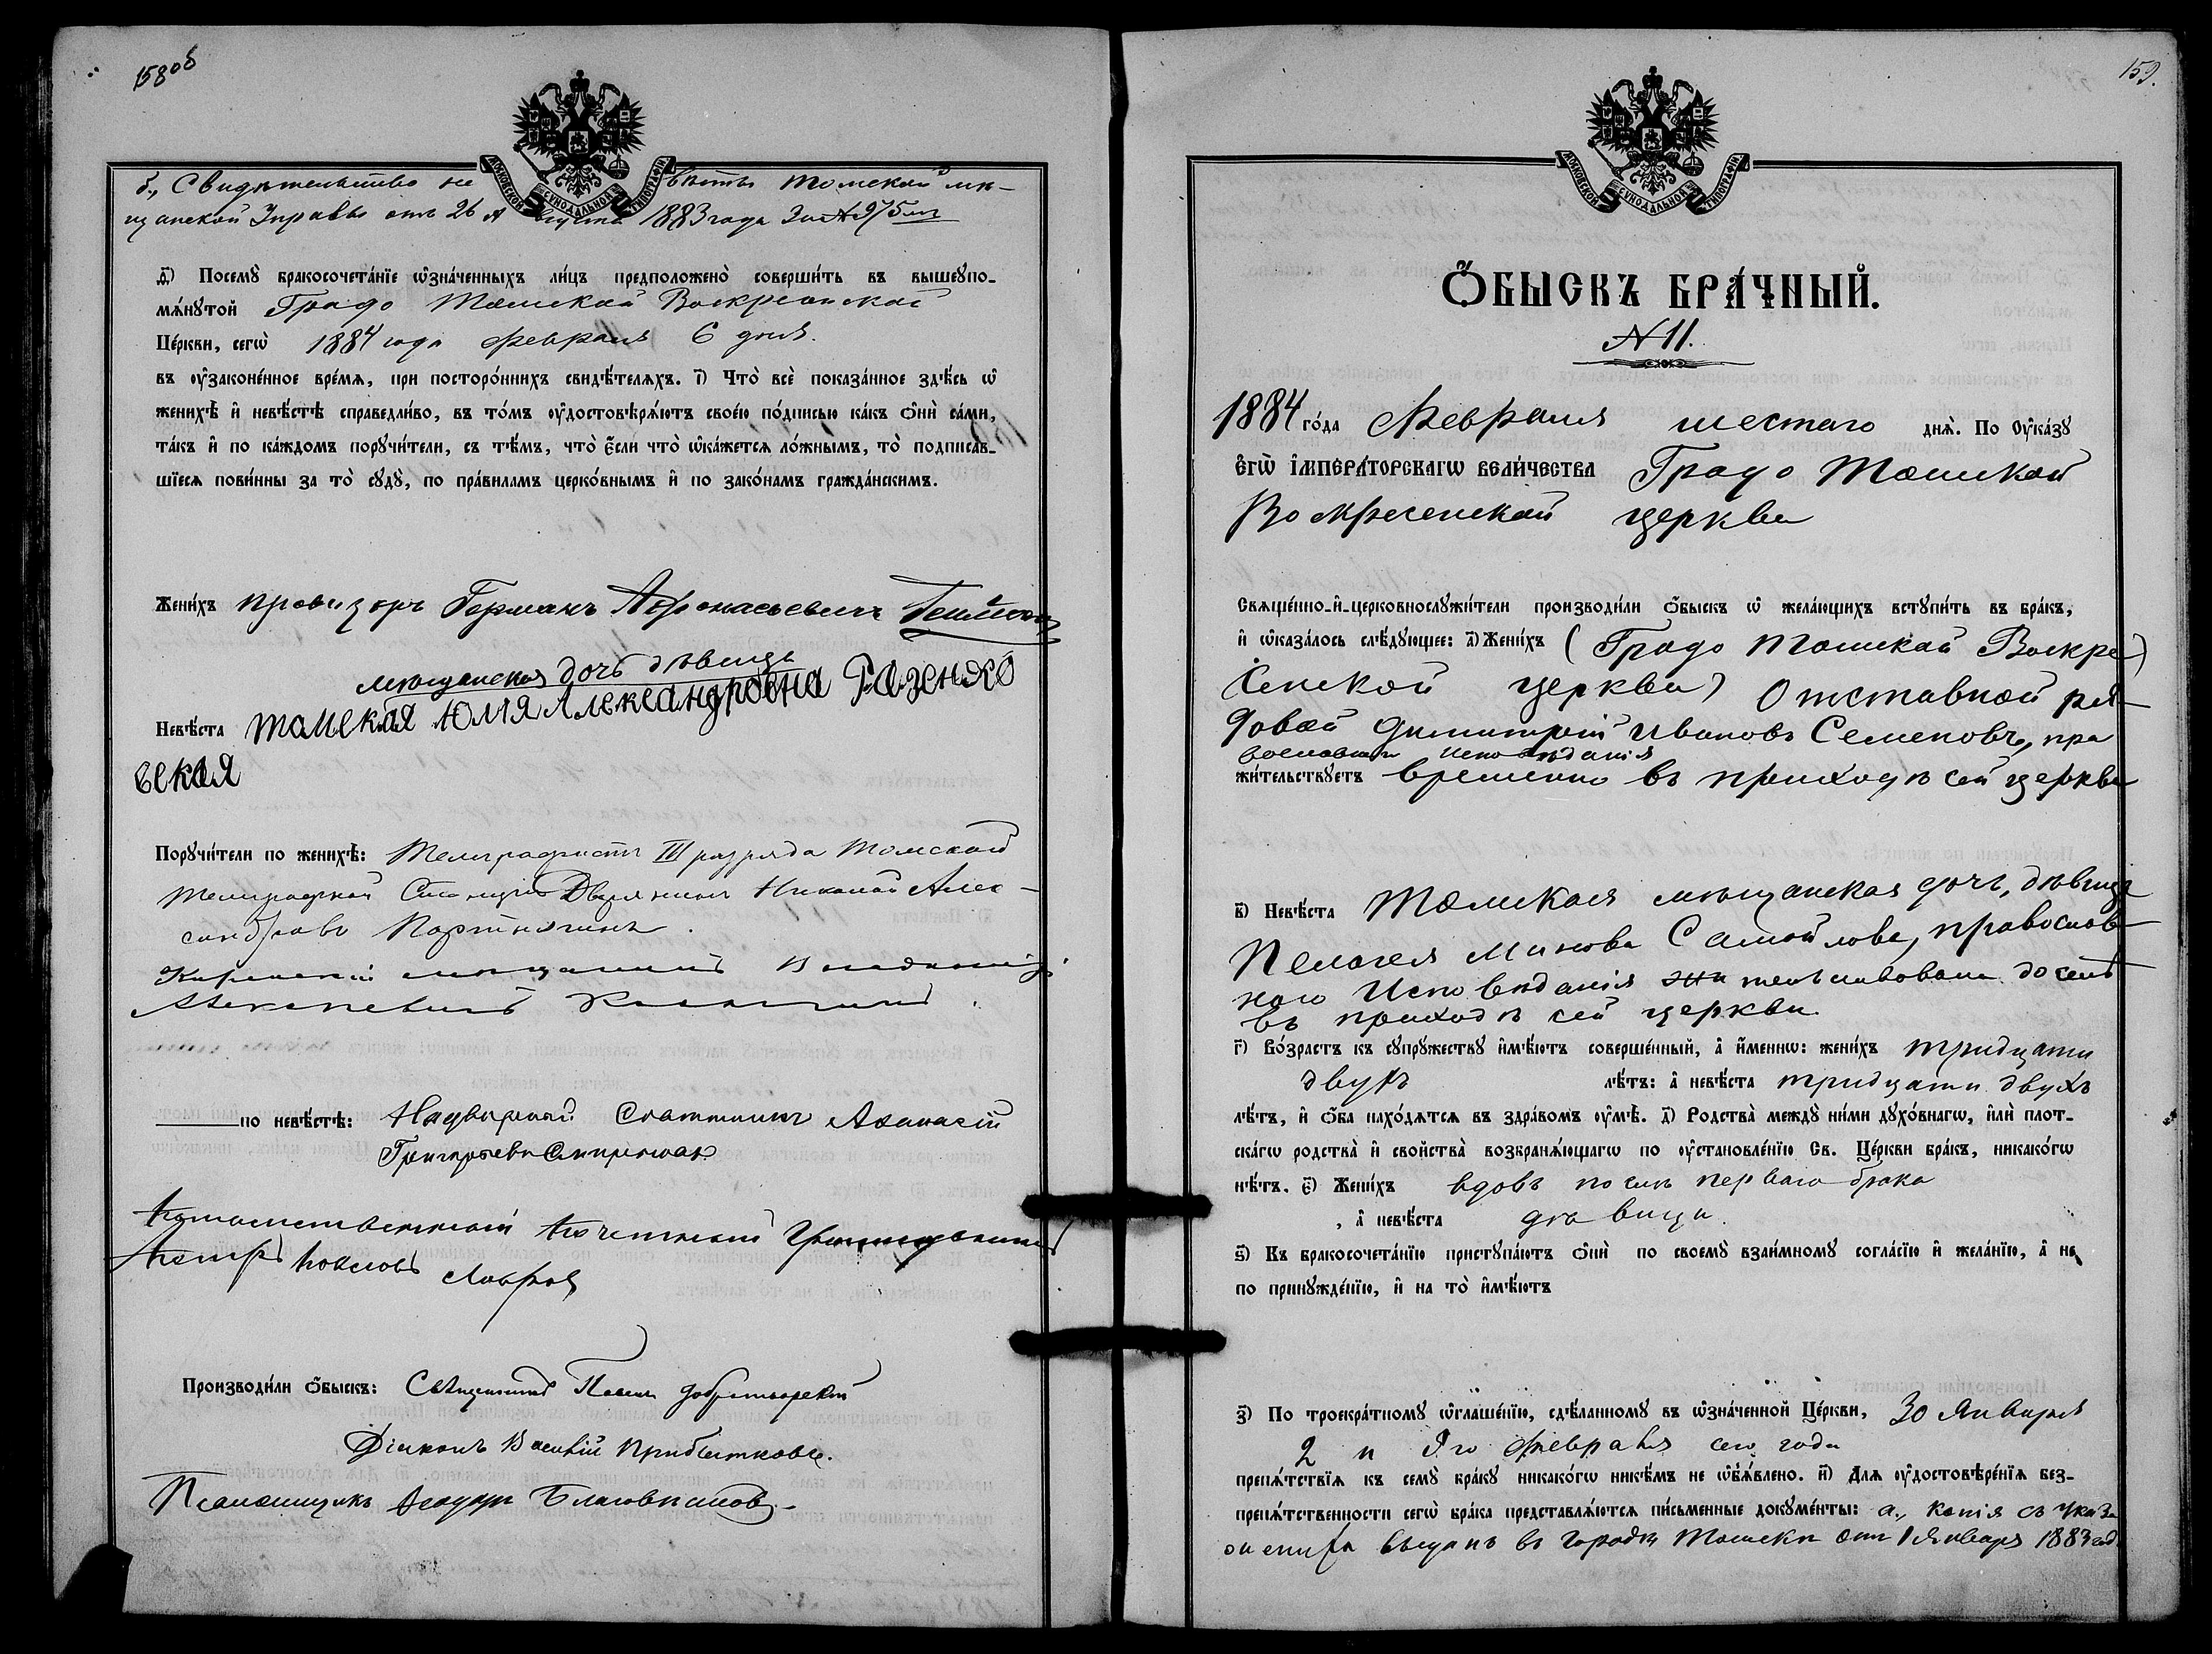 158об
МОСКОВСКОЙ СУНОДАЛЬНОЙ ТИПОГРАФІИ
б., Свидѣтельство не вѣсты Томской мѣ-
щанской Управы отъ 26 Августа 1883 года за № 975мъ
д҃) Посемꙋ̀ бракосочета́нїе ѡ҆зна́ченныхъ ли́цъ предположено̀ соверши́ть въ вышеꙋпо-
мѧ́нꙋтой Градо Томской Воскресенской
Це́ркви, сегѡ̀ 1884 года февраля 6 дня.
въ ᲂу҆законе́нное вре́мѧ, при посторо́ннихъ свидѣ́телѧхъ. і҃) Что̀ всѐ показа́нное здѣ́сь ѡ҆
женихѣ̀ и҆ невѣ́стѣ справедли́во, въ то́мъ ᲂу҆достовѣрѧ́ютъ свое́ю по́дписью ка́къ ѻ҆нѝ са́ми,
та́къ и҆ по ка́ждомъ порꙋчи́тели, съ тѣ́мъ, что̀ є҆́сли что̀ ѡ҆ка́жетсѧ ло́жнымъ, то̀ подписа́в-
шїесѧ пови́нны за то̀ сꙋдꙋ̀, по пра́виламъ церко́внымъ и҆ по зако́намъ гражда́нскимъ.
Жени́хъ провизоръ Германъ Афонасьевичъ
мѣщанская дочь дѣвица
Невѣ́ста томская Юлія Александровна Разенко
вская
Порꙋчи́тели по женихѣ̀: Телеграфистъ III разряда Томской
Телеграфной Станціи Дворянинъ Николай Алек-
сандровъ Портнягинъ.
мѣщанинъ
по невѣ́стѣ: Надворный Совѣтникъ Аѳанасій
Григорьевъ
Потомственный Почетный Гражданинъ
Петръ Павловъ Лавровъ
Производи́ли ѻ҆́быскъ: Священникъ Павелъ Добротворскій
Діаконъ Василій Прибытковъ.
Псаломщикъ Ѳеодоръ
159.
МОСКОВСКОЙ СУНОДАЛЬНОЙ ТИПОГРАФІИ
Ѻ҆́БЫСКЪ БРА́ЧНЫЙ.
№ 11.
1884 го́да Февраля шестаго днѧ̀. По ᲂу҆ка́зꙋ
є҆гѡ̀ і҆мпера́торскагѡ вели́чества Градо Томской
Воскресенской церкви
Свѧще́нно-и҆-церковнослꙋжи́тели производи́ли ѻ҆́быскъ ѡ҆ жела́ющихъ встꙋпи́ть въ бра́къ,
и҆ ѡ҆каза́лось слѣ́дꙋющее: а҃) Жени́хъ (Градо Томской Воскре
сенской церкви) Отставной ря-
довой Димитрій Ивановъ Семеновъ, пра
вославнаго исповѣданія
жи́тельствꙋетъ временно въ приходѣ сей церкви
в҃) Невѣ́ста Томская мѣщанская дочь, дѣвица
Пелагея Минова Самойлова, православ-
наго Исповѣданія жительствовала доселѣ
въ приходѣ сей церкви.
г҃) Во́зрастъ къ сꙋпрꙋ́жествꙋ и҆мѣ́ютъ соверше́нный, а҆ и҆́меннѡ: жени́хъ тридцати
двухъ лѣ́тъ: а҆ невѣ́ста тридцати двухъ
лѣ́тъ, и҆ ѻ҆́ба нахо́дѧтсѧ въ здра́вомъ ᲂу҆мѣ̀. д҃) Родства̀ междꙋ̀ ни́ми дꙋхо́внагѡ, и҆лѝ плот-
ска́гѡ родства̀ и҆ сво́йства возбранѧ́ющагѡ по ᲂу҆становле́нїю Св. Це́ркви бра́къ, никако́гѡ
нѣ́тъ. є҃) Жени́хъ вдовъ послѣ перваго брака
, а҆ невѣ́ста дѣвица.
ѕ҃) Къ бракосочета́нїю пристꙋпа́ютъ ѻ҆нѝ по своемꙋ̀ взаи́мномꙋ согла́сїю и҆ жела́нїю, а҆ не
по принꙋжде́нїю, и҆ на то̀ и҆мѣ́ютъ
з҃) По троекра́тномꙋ ѡ҆глаше́нїю, сдѣ́ланномꙋ въ ѡ҆зна́ченной Це́ркви, 30 Января
2 и 5го февраля сего года
препѧ́тствїѧ къ семꙋ̀ бра́кꙋ никако́гѡ никѣ́мъ не ѡ҆б̾ѧ́влено. и҃) Длѧ ᲂу҆достовѣре́нїѧ без-
препѧ́тственности сегѡ̀ бра́ка представлѧ́ютсѧ пи́сьменные докꙋме́нты: а., копія съ указа
выданъ въ городѣ Томскѣ отъ 1 Января 1883 год.